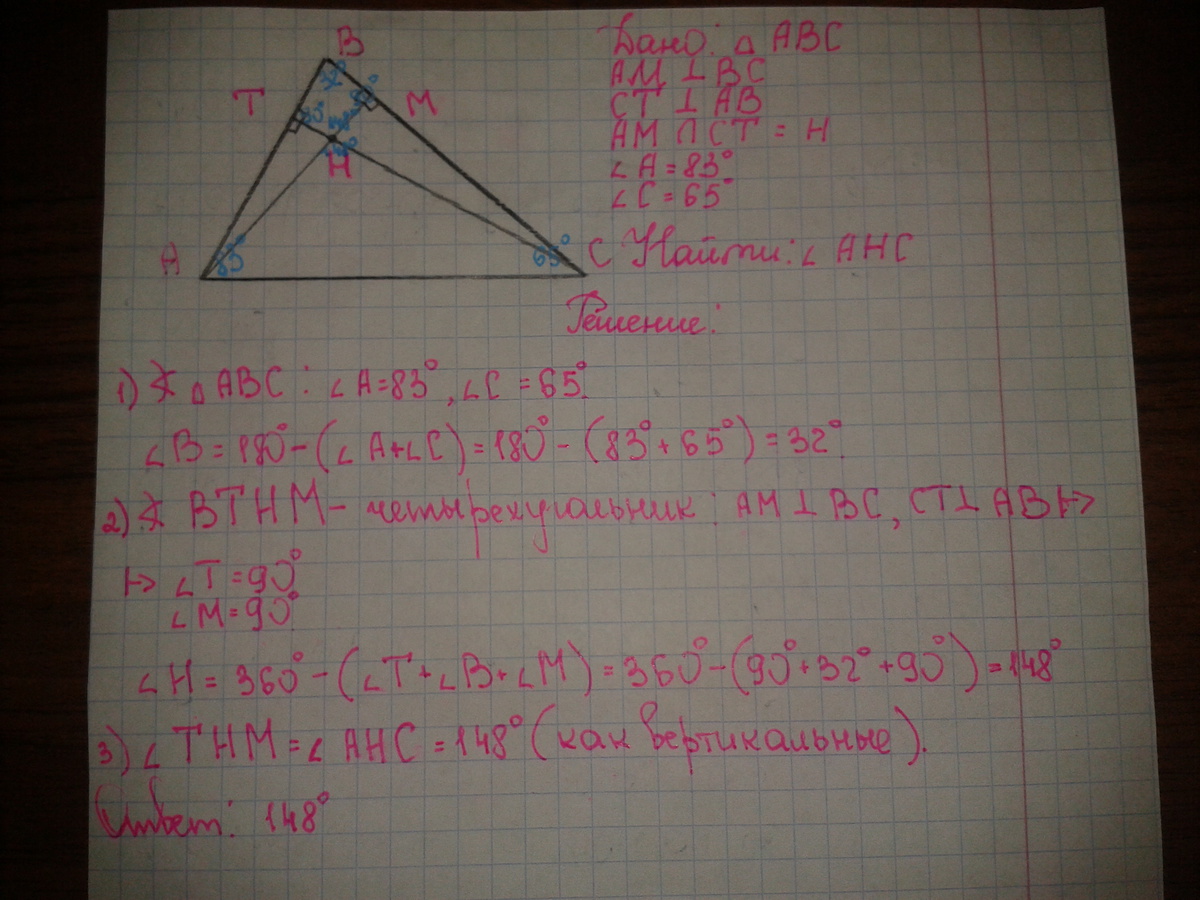 B
T
M
H
A
C
32°
90°
90°
148°
148°
83°
65°
Дано: △ ABC
AM ⊥ BC
CT ⊥ AB
AM ∩ CT = H
∠A = 83°
∠C = 65°
Найти: ∠ AHC
Решение:
1) ∆ ABC: ∠A=83°, ∠C = 65°.
∠B = 180° - (∠A+∠C) = 180° - (83° + 65°) = 32°.
2) BTHM - четырехугольник: AM ⊥ BC, CT ⊥ AB ↦
↦ ∠T = 90°
∠M = 90°
∠H = 360° - (∠T+∠B+∠M) = 360° - (90°+32°+90°) = 148°
3) ∠THM = ∠AHC = 148° (как вертикальные).
Ответ: 148°